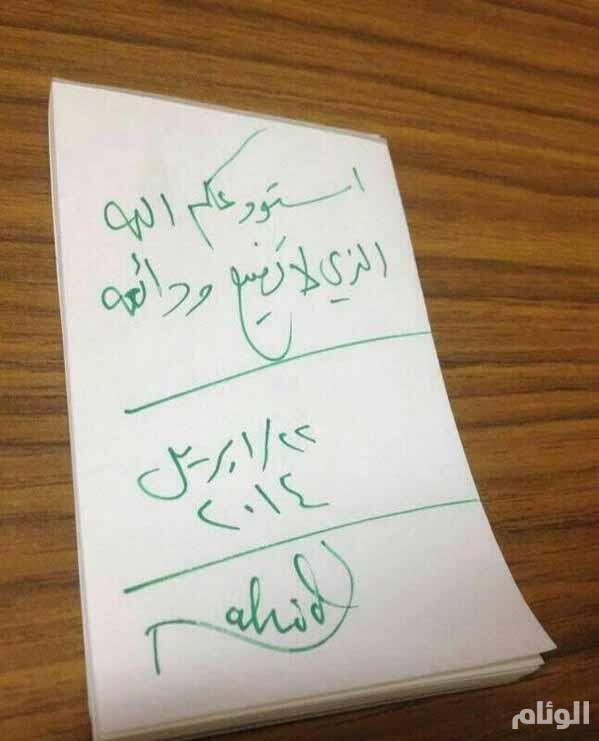 استودعكم الله
الذي لا تضيع ودائعه
٢٢/ابريل
٢٠١٤
Nahid
الوئام